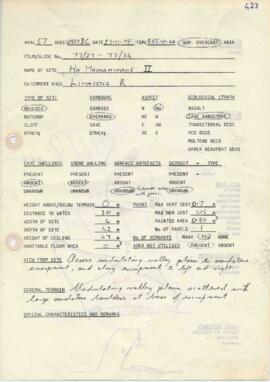 423
ANAL 67
SUN OVERCAST RAIN
FILM/SLIDE NO. 73/27 - 73/36
NAME OF SITE HA MAHAHINANE II
CATCHMENT AREA R
TYPE OF SITE EXPOSURE ASPECT GEOLOGICAL STRATA
BOULDER EXPOSED N NW BASALT
OUTCROP OVERHANG CAVE SANDSTONE
CLIFF CAVE E SW TRANSITIONAL BEDS
OTHER: OTHER: S RED BEDS
MOLTENO BEDS
UPPER BEAUFORT BEDS
CAVE DWELLINGS STONE WALLING SURFACE ARTEFACTS DEPOSIT - TYPE
PRESENT PRESENT PRESENT PRESENT
ABSENT ABSENT ABSENT
UNKNOWN UNKNOWN UNKNOWN
HEIGHT ABOVE/BELOW TERRAIN 0 M PAINT MAX VERT DIST 0.7 M
DISTANCE TO WATER 30 M MAX HOR DIST M
DEPTH OF SITE 4 M PAINTED AREA M
WIDTH OF SITE 42 M NO OF PANELS 1
HEIGHT OF CEILING 47 M NO OF REMNANTS MANY FEW NONE
HABITABLE FLOOR AREA 0 M AREA NOT UTILISED PRESENT ABSENT
VIEW FROM SITE Across undulating valley plain to sandstone
escarpment, and along escarpment to left and right
GENERAL TERRAIN Undulating valley plain scattered with
large sandstone boulders at base of escarpment
SPECIAL CHARACTERISTICS AND REMARKS